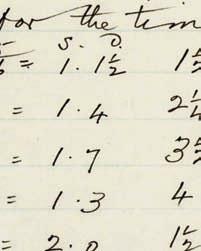 for the tim
s. d.
= 1.1½ 1½
= 1.4 2¼
= 1.7 3½
= 1.3 4
= 2.0 1½